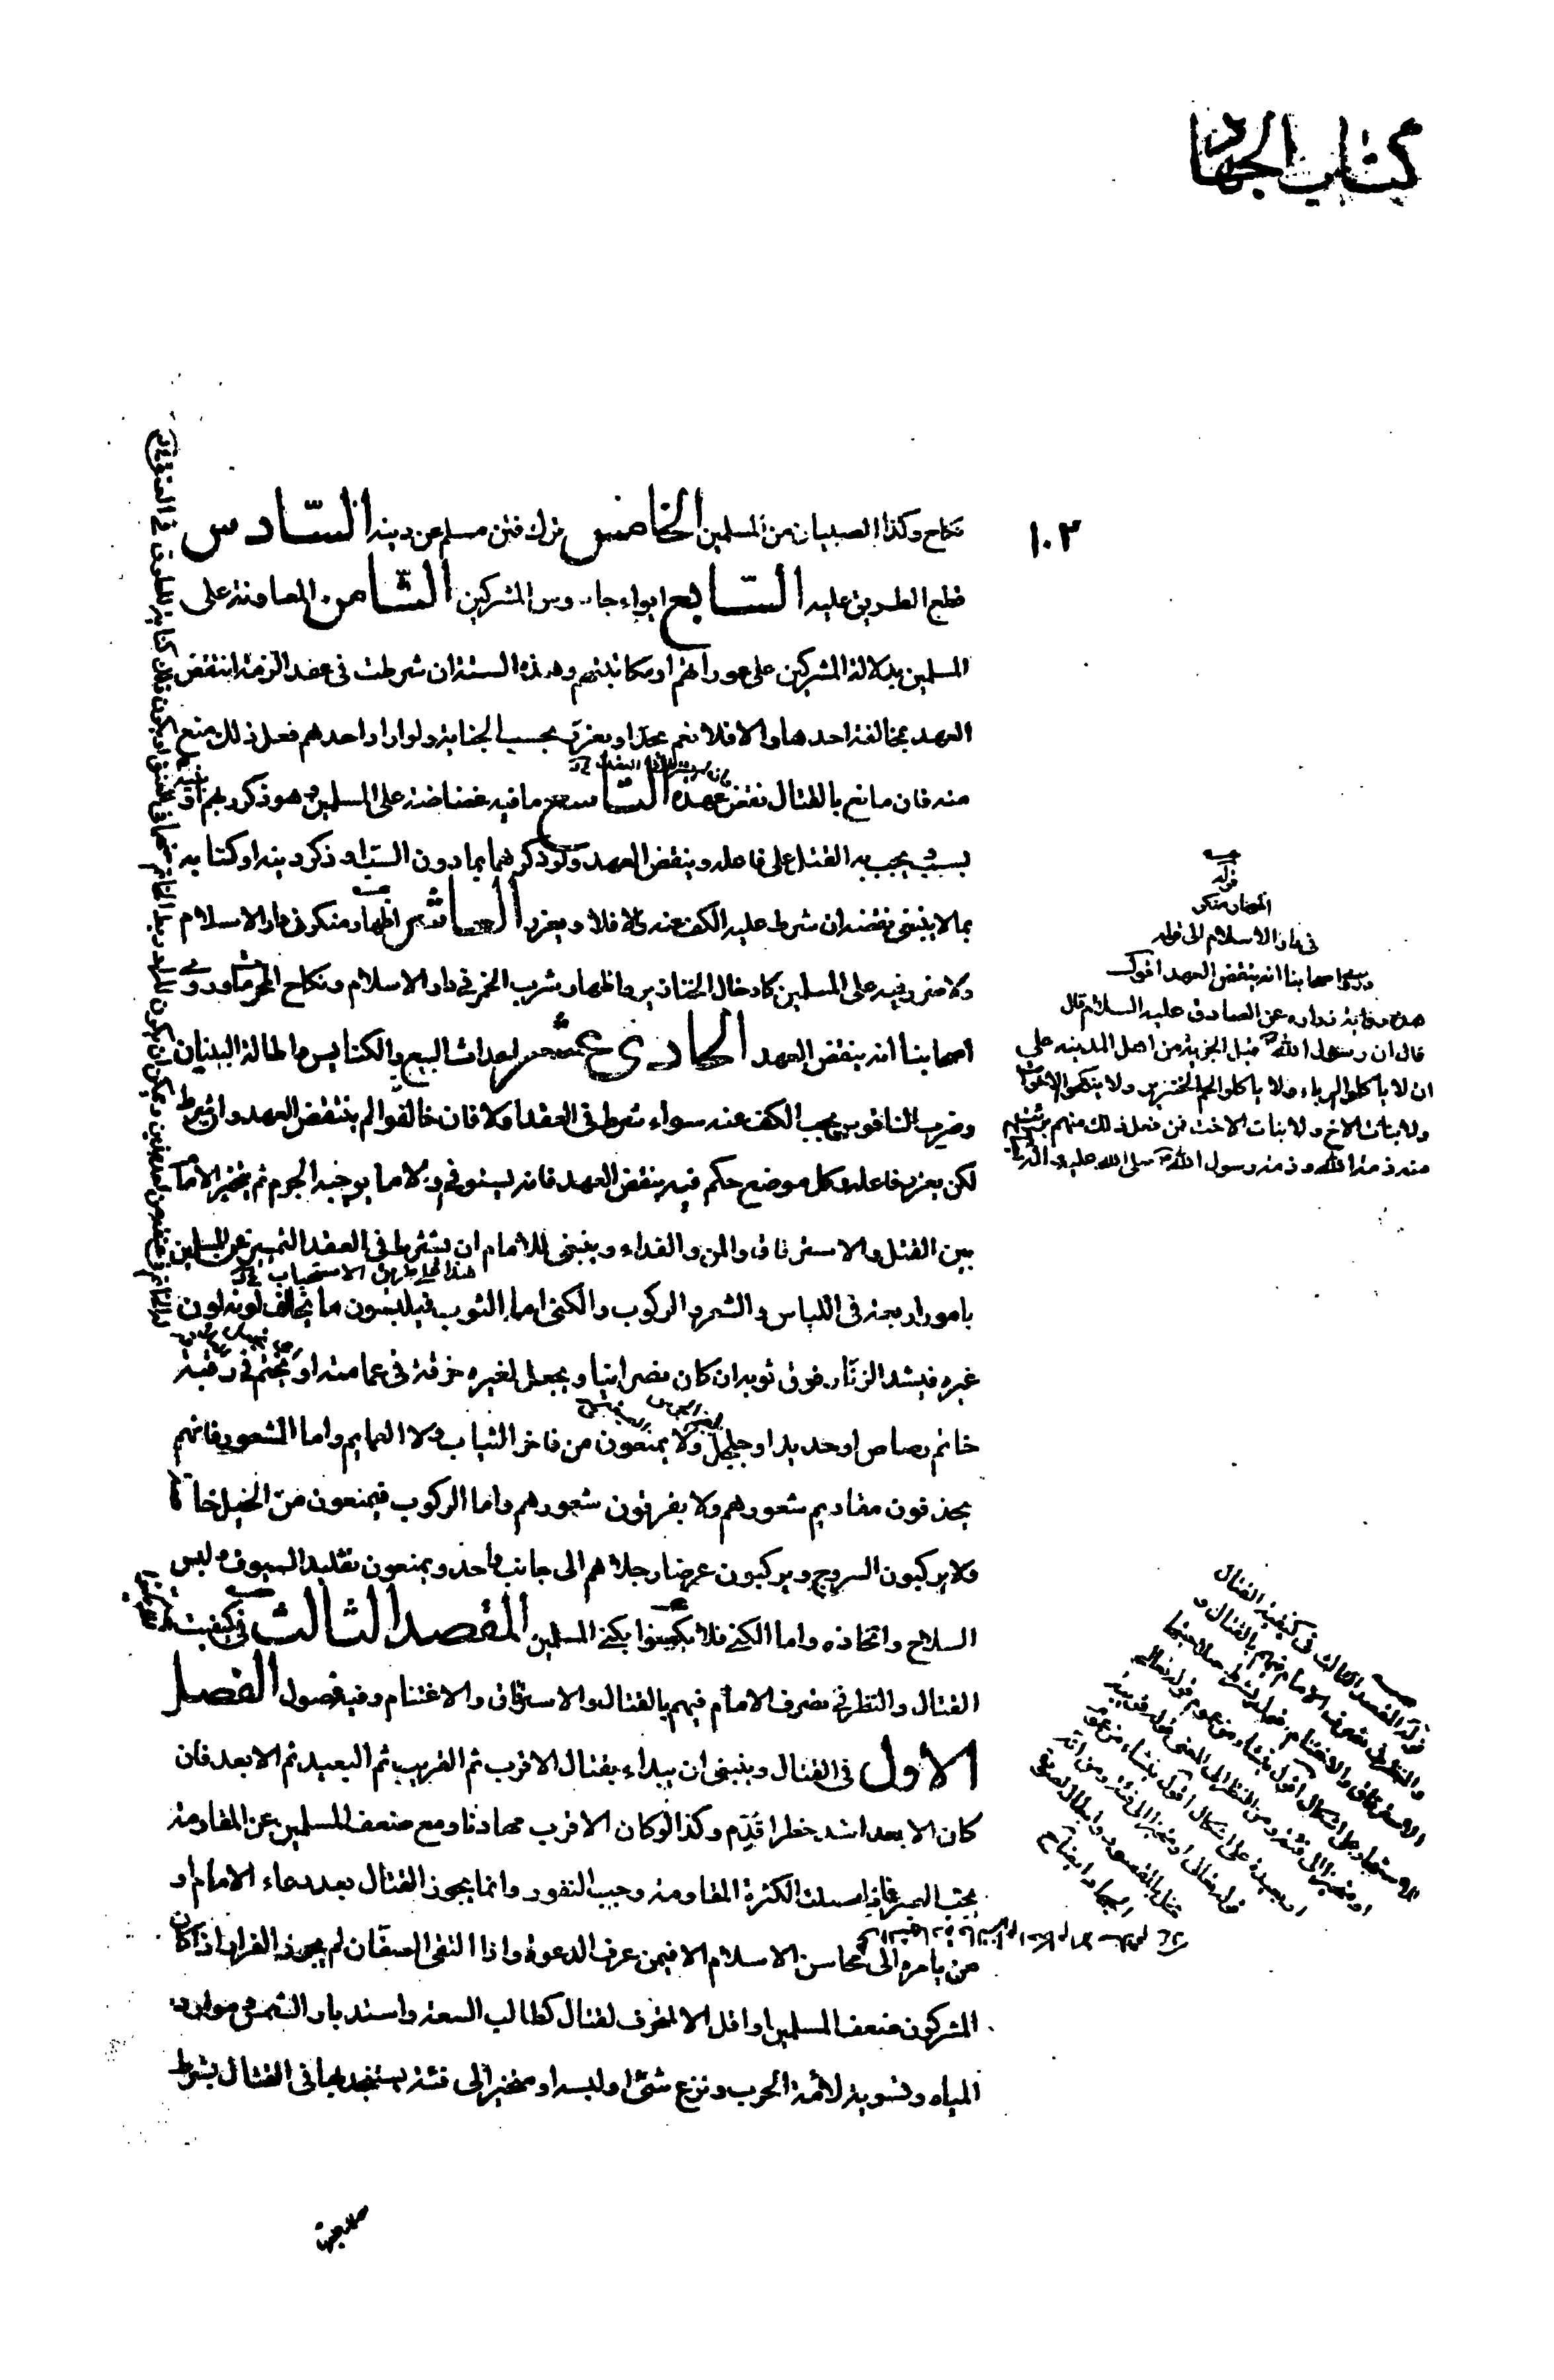 كتاب الجهاد
١٠٣
نكاح وكذا الصبيان من المسلمين الخامس ترك فتن مسلم عن دينه السّادس
قطع الطريق عليه السّابع ايواء جاسوس المشركين الثّامن المعاونة على
المسلمين بدلالة المشركين على عوراتهم او مكاتبتهم وهذه الستة ان شرطت في عقد الذمة انتقض
العهد بمخالفة احدها والا فلا نعم يحدّ او يعزّر بحسب الجناية ولو اراد احدهم فعل ذلك منع
منه فان مانع بالقتال نقض عهده التاسع ما فيه غضاضة على المسلمين وهو ذكر ربهم او
بسب يجب به القتل على فاعله وينقض العهد ولو ذكرهما بما دون السبّ او ذكر دينه او كتابه
بما لا ينبغي نقضه ان شرط عليه الكف عنه والا فلا ويعزر العاشر اظهار منكر في دار الاسلام
ولا ضرر فيه على المسلمين كادخال الخنازير واظهار شرب الخمر في دار الاسلام ونكاح المحرمات وروى
اصحابنا انه ينقض العهد الحادي عشر احداث البيع والكنايس واطالة البنيان
وضرب الناقوس يجب الكف عنه سواء شرط في العقد او لا فان خالفوا لم ينتقض العهد وان شرط
لكن يعزر فاعله وكل موضع حكم فيه بنقض العهد فانه يستوفي اولا ما يوجبه الجرم ثم يتخير الامام
بين القتل والاسترقاق والمن والفداء وينبغي للامام ان يشترط في العقد التميز عن المسلمين
هذا على طريق الاستحباب
بامور اربعة في اللباس والشعر والركوب والكنى اما الثوب فيلبسون ما يخالف لونه لون
غيره فيشد الزنّار فوق ثوبه ان كان نصرانيا ويجعل لغيره خرقة في عمامته او يختم في رقبته
خاتم رصاص او حديد او جلجل ولا يمنعون من فاخر الثياب ولا العمايم واما الشعور فانهم
يحذفون مقاديم شعورهم ولا يفرقون شعورهم واما الركوب فيمنعون من الخيل خاصة
ولا يركبون السروج ويركبون عرضا رجلاهم الى جانب واحد ويمنعون تقليد السيوف ولبس
السلاح واتخاذه واما الكنى فلا يكتنوا بكنى المسلمين المقصد الثالث في كيفية
القتال والنظر في تصرف الامام فيهم بالقتال والاسترقاق والاغتنام وفيه فصول الفصل
الاول في القتال وينبغي ان يبداء بقتال الاقرب ثم القريب ثم البعيد ثم الابعد فان
كان الابعد اشد خطرا قُدِّم وكذا لو كان الاقرب مهادنا ومع ضعف المسلمين عن المقاومة
يجب الصبر فاذا حصلت الكثرة المقاومة وجب النفور وانما يجوز القتال بعد دعاء الامام او
من يامره الى محاسن الاسلام الا فيمن عرف الدعوة واذا التقى الصفّان لم يجز الفرار اذا كان
المشركون ضعف المسلمين او اقل الا لمتحرف لقتال كطالب السعة واستدبار الشمس وموارد
المياه وتسوية لأمة الحرب ونزع شئ او لبسه او متحيز الى فئة يستنجد بها في القتال بشرط
صلاحيتها
قوله
اظهار منكر
في دار الاسلام الى قوله
وروى اصحابنا انه ينقض العهد اقول
هذه رواية زرارة عن الصادق عليه السلام قال
قال ان رسول الله قبل الجزية من اهل المدينه على
ان لا ياكلوا الرباء ولا ياكلوا لحم الخنزير ولا ينكحوا الاخوات
ولا بنات الاخ ولا بنات الاخت فمن فعل ذلك منهم برئت
منه ذمة الله وذمة رسول الله صلى الله عليه واله
قوله المقصد الثالث في كيفية القتال
والنظر في تصرف الامام فيهم بالقتال و
الاسترقاق والاغتنام